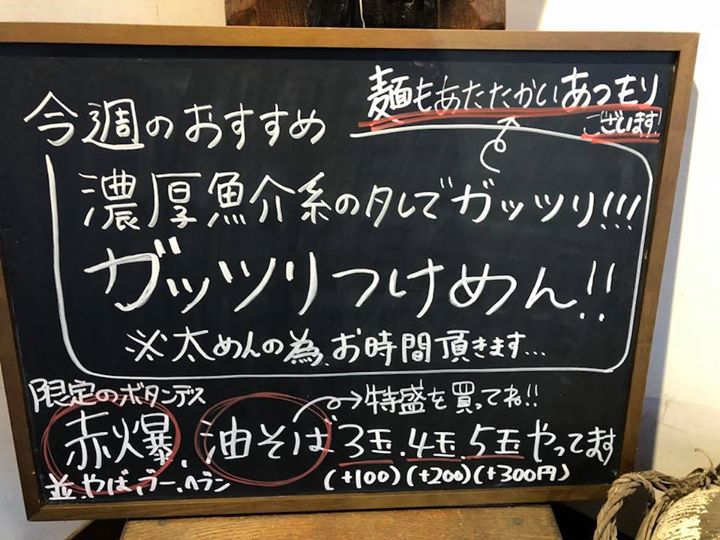 今週のおすすめ
麺もあたたかいあつもり
ございます
濃厚魚介系のタレでガッツリ!!!
ガッツリつけめん!!
※太めんの為、お時間頂きます...
限定のボタンデス
→特盛を買ってね!!
赤爆、油そば 3玉、4玉、5玉やってます
(+100)(+200)(+300円)
並、やば、ブー、ヘブン